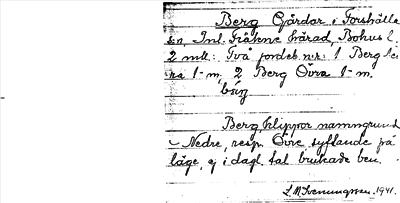 Berg Gårdar i Forshälla
sn, Inl. Fräkne härad, Bohus l.
2 mtl: Två jordeb.n:r: 1 Berg Ne
ra 1-m, 2 Berg Övra 1-m.
bærj
Berg klippor namngrund
- Nedre, resp. Övre syftande på
läge, ej i dagl. tal brukade ben.
1941.